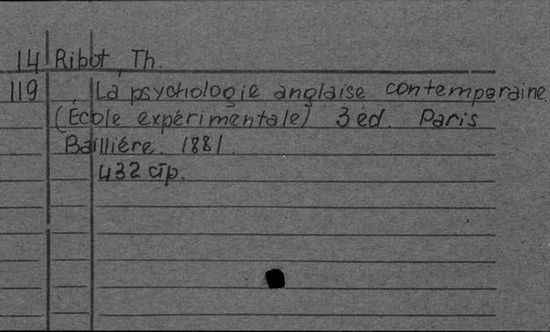 14 Ribot, Th.
119 La psychologie anglaise contemporaine
(Ecole expérimentale) 3 éd. Paris
Baillière. 1881.
432 стр.